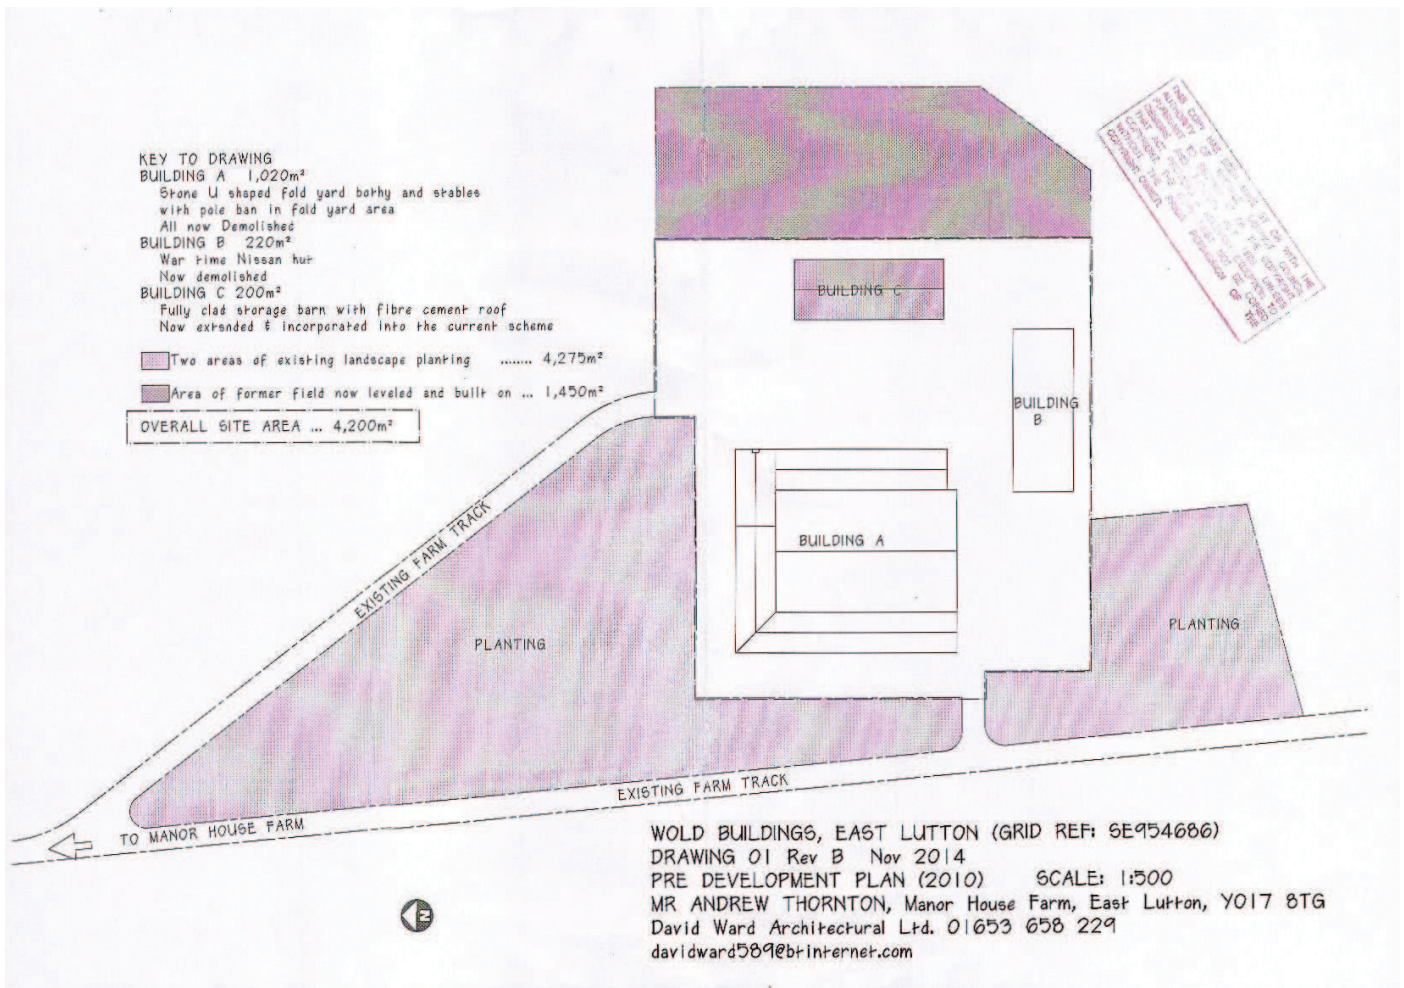 KEY TO DRAWING
BUILDING A 1,020m²
Stone U shaped fold yard bothy and stables
with pole ban in fold yard area
All now Demolished
BUILDING B 220m²
War time Nissan hut
Now demolished
BUILDING C 200m²
Fully clad storage barn with fibre cement roof
Now extended & incorporated into the current scheme
Two areas of existing landscape planting ........ 4,275m²
Area of former field now leveled and built on ... 1,450m²
OVERALL SITE AREA ... 4,200m²
BUILDING C
BUILDING
B
BUILDING A
EXISTING FARM TRACK
PLANTING
PLANTING
EXISTING FARM TRACK
TO MANOR HOUSE FARM
N
WOLD BUILDINGS, EAST LUTTON (GRID REF: SE954686)
DRAWING 01 Rev B Nov 2014
PRE DEVELOPMENT PLAN (2010) SCALE: 1:500
MR ANDREW THORNTON, Manor House Farm, East Lutton, YO17 8TG
David Ward Architectural Ltd. 01653 658 229
davidward589@btinternet.com
THIS COPY HAS BEEN MADE BY OR WITH THE
AUTHORITY OF
PURSUANT TO
COPYRIGHT OWNER